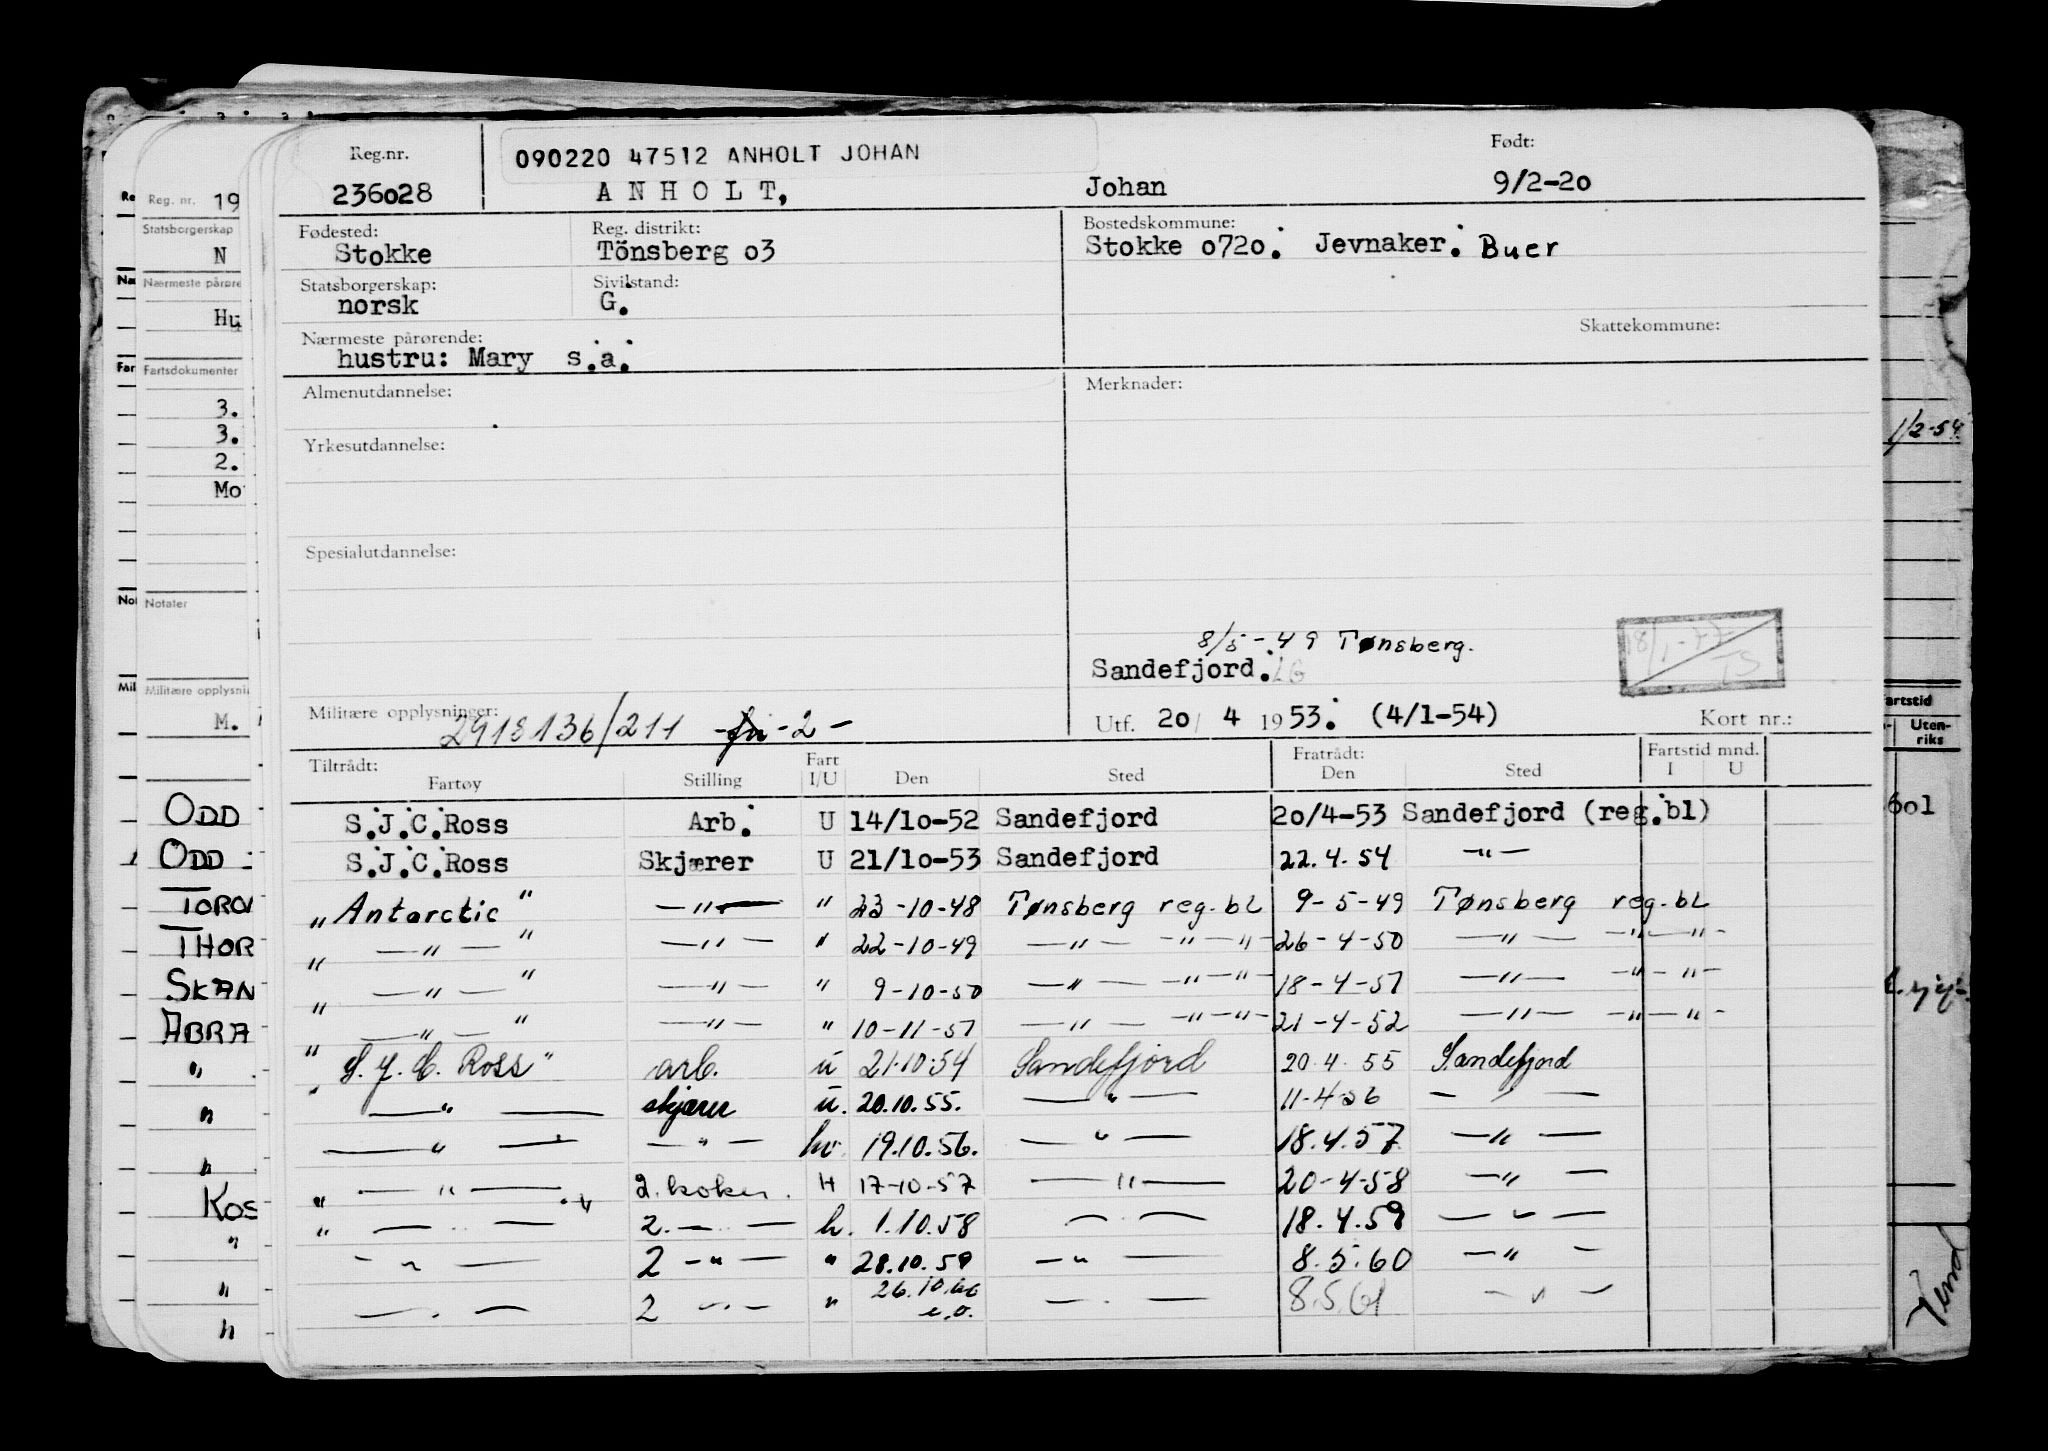 Reg.nr. 090220 47512 ANHOLT JOHAN Født:
236028 ANHOLT, Johan 9/2-20
Fødested: Reg. distrikt: Bostedskommune:
Stokke Tönsberg o3 Stokke o72o. Jevnaker. Buer
Statsborgerskap: Sivilstand:
norsk G.
Nærmeste pårørende: Skattekommune:
hustru: Mary s.a.
Almenutdannelse: Merknader:
Yrkesutdannelse:
Spesialutdannelse:
8/5-49 Tønsberg.
Sandefjord.
Militære opplysninger: 2918136/211 -2-
Utf. 20/4 1953. (4/1-54) Kort nr.:
Tiltrådt: Fart Fratrådt: Fartstid mnd.
Fartøy Stilling I/U Den Sted Den Sted I U
S.J.C.Ross Arb. U 14/1o-52 Sandefjord 20/4-53 Sandefjord (reg.bl)
S.J.C.Ross Skjærer U 21/1o-53 Sandefjord 22.4.54 —"—
"Antarctic" —"— " 23-10-48 Tønsberg reg.bl 9-5-49 Tønsberg reg.bl
" —"— " —"— " 22-10-49 —"— —"—"— 26-4-50 —"— —"—"—
" —"— " —"— " 9-10-50 —"— —"—"— 18-4-51 —"— —"—"—
" —"— " —"— " 10-11-51 —"— —"—"— 21-4-52 —"— —"—"—
"S.J.C. Ross" arb. u 21.10.54 Sandefjord 20.4.55 Sandefjord
" —"— skjærer u. 20.10.55. —"— 11-4-56 —"—
—"— —"— hv. 19.10.56. —"— 18.4.57 —"—
" —"— " 2. koker. H 17-10-57 —"— 20-4-58 —"—
" —"— 2. —"— h. 1.10.58 —"— 18.4.59 —"—
—"— 2 —"— " 28.10.59 —"— 8.5.60 —"—
—"— 2 —"— " 26.10.60 —"— 8.5.61 —"—
Reg. nr. 19
Statsborgerskap
N
Nærmeste pårøre
Hu
Fartsdokumenter
3.
3.
2.
Mo
Notater
Militære opplysni
M.
ODD
ODD
TORO
THOR
SKAN
ABRA
"
"
"
KOS
"
"
"
1/2-54
artstid
Uten-
riks
601